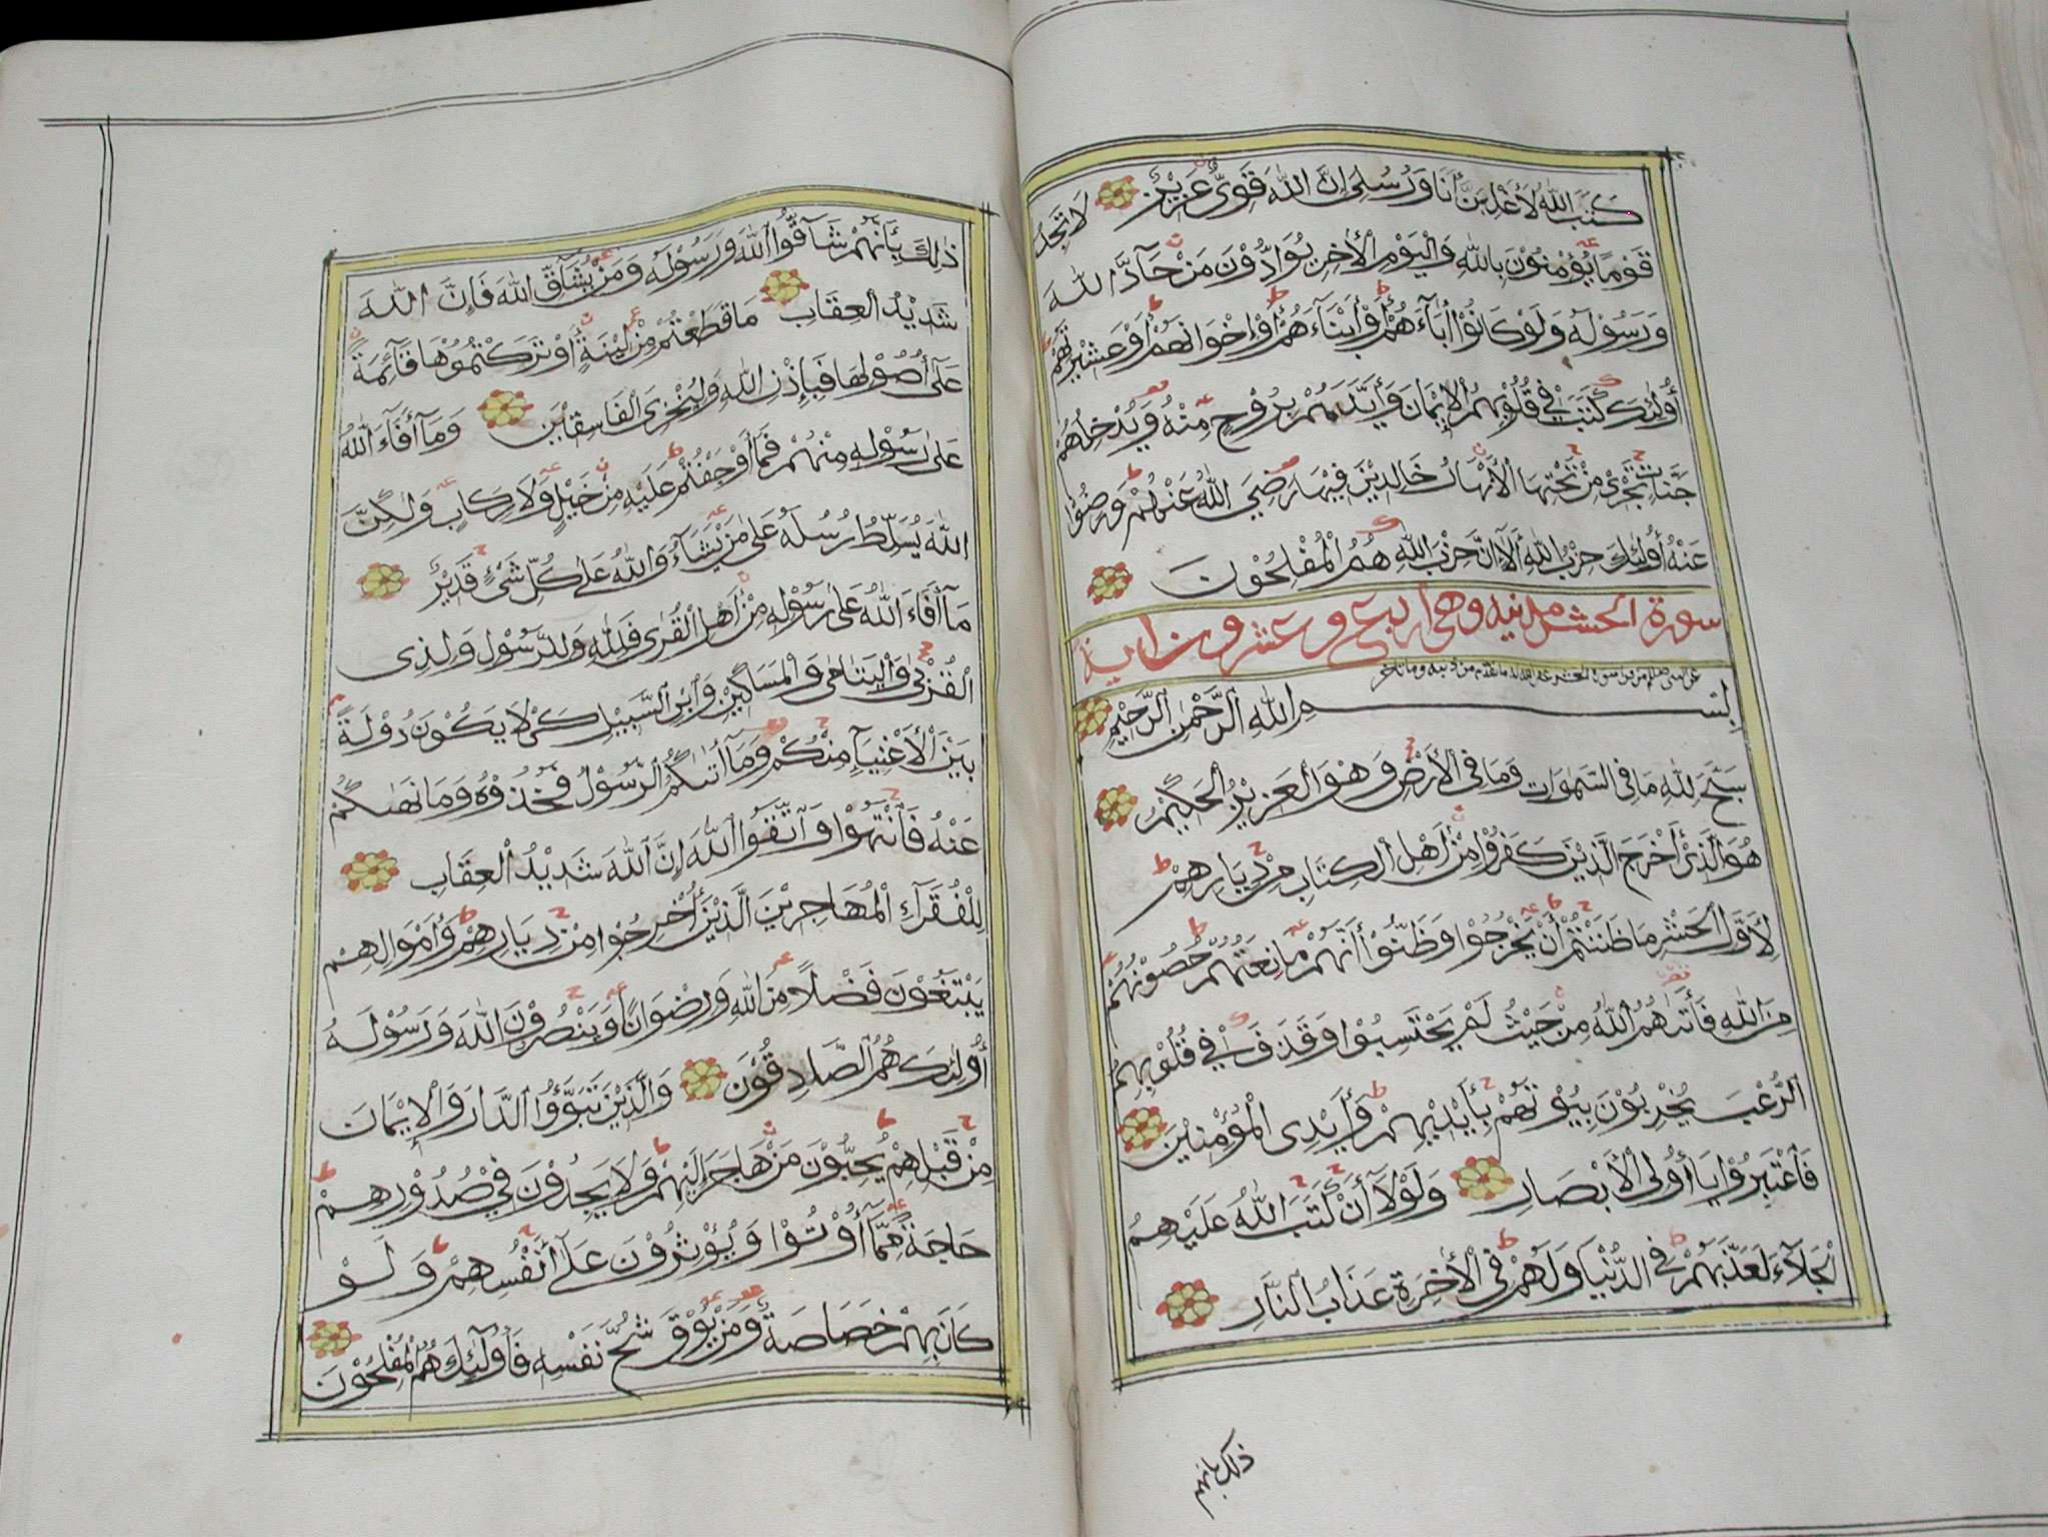 كَتَبَ اللّٰهُ لَأَغْلِبَنَّ أَنَا وَرُسُلِىْ إِنَّ اللّٰهَ قَوِىٌّ عَزِيْزٌ لَا تَجِدُ
قَوْمًا يُؤْمِنُوْنَ بِاللّٰهِ وَالْيَوْمِ الْأٰخِرِ يُوَآدُّوْنَ مَنْ حَآدَّ اللّٰهَ
وَرَسُوْلَهُ وَلَوْ كَانُوْا أٰبَآءَهُمْ أَوْ أَبْنَآءَهُمْ أَوْ إِخْوَانَهُمْ أَوْ عَشِيْرَتَهُمْ
أُولٰئِكَ كَتَبَ فِيْ قُلُوْبِهِمُ الْإِيْمَانَ وَأَيَّدَهُمْ بِرُوْحٍ مِنْهُ وَيُدْخِلُهُمْ
جَنَّاتٍ تَجْرِىْ مِنْ تَحْتِهَا الْأَنْهَارُ خَالِدِيْنَ فِيْهَا رَضِيَ اللّٰهُ عَنْهُمْ وَرَضُوْا
عَنْهُ أُولٰئِكَ حِزْبُ اللّٰهِ أَلَا إِنَّ حِزْبَ اللّٰهِ هُمُ الْمُفْلِحُوْنَ
سورة الحشر مدنيه وهي اربع وعشرون اية
من قرا سورة الحشر غفر الله له ما تقدم من ذنبه وما تاخر
بِسْمِ اللّٰهِ الرَّحْمٰنِ الرَّحِيْمِ
سَبَّحَ لِلّٰهِ مَا فِى السَّمٰوَاتِ وَمَا فِى الْأَرْضِ وَهُوَ الْعَزِيْزُ الْحَكِيْمُ
هُوَ الَّذِىْ أَخْرَجَ الَّذِيْنَ كَفَرُوْا مِنْ أَهْلِ الْكِتَابِ مِنْ دِيَارِهِمْ
لِأَوَّلِ الْحَشْرِ مَا ظَنَنْتُمْ أَنْ يَخْرُجُوْا وَظَنُّوْا أَنَّهُمْ مَانِعَتُهُمْ حُصُوْنُهُمْ
مِنَ اللّٰهِ فَأَتٰهُمُ اللّٰهُ مِنْ حَيْثُ لَمْ يَحْتَسِبُوْا وَقَذَفَ فِيْ قُلُوْبِهِمُ
الرُّعْبَ يُخْرِبُوْنَ بُيُوْتَهُمْ بِأَيْدِيْهِمْ وَأَيْدِى الْمُؤْمِنِيْنَ
فَاعْتَبِرُوْا يَا أُولِى الْأَبْصَارِ وَلَوْلَا أَنْ كَتَبَ اللّٰهُ عَلَيْهِمُ
الْجَلَآءَ لَعَذَّبَهُمْ فِى الدُّنْيَا وَلَهُمْ فِى الْأٰخِرَةِ عَذَابُ النَّارِ
ذلك بانهم
ذٰلِكَ بِأَنَّهُمْ شَآقُّوا اللّٰهَ وَرَسُوْلَهُ وَمَنْ يُشَآقِّ اللّٰهَ فَإِنَّ اللّٰهَ
شَدِيْدُ الْعِقَابِ مَا قَطَعْتُمْ مِنْ لِيْنَةٍ أَوْ تَرَكْتُمُوْهَا قَآئِمَةً
عَلٰى أُصُوْلِهَا فَبِإِذْنِ اللّٰهِ وَلِيُخْزِىَ الْفَاسِقِيْنَ وَمَا أَفَآءَ اللّٰهُ
عَلٰى رَسُوْلِهِ مِنْهُمْ فَمَا أَوْجَفْتُمْ عَلَيْهِ مِنْ خَيْلٍ وَلَا رِكَابٍ وَلٰكِنَّ
اللّٰهَ يُسَلِّطُ رُسُلَهُ عَلٰى مَنْ يَشَآءُ وَاللّٰهُ عَلٰى كُلِّ شَىْءٍ قَدِيْرٌ
مَآ أَفَآءَ اللّٰهُ عَلٰى رَسُوْلِهِ مِنْ أَهْلِ الْقُرٰى فَلِلّٰهِ وَلِلرَّسُوْلِ وَلِذِى
الْقُرْبٰى وَالْيَتَامٰى وَالْمَسَاكِيْنِ وَابْنِ السَّبِيْلِ كَىْ لَا يَكُوْنَ دُوْلَةً
بَيْنَ الْأَغْنِيَآءِ مِنْكُمْ وَمَآ أَتٰىكُمُ الرَّسُوْلُ فَخُذُوْهُ وَمَا نَهٰىكُمْ
عَنْهُ فَانْتَهُوْا وَاتَّقُوا اللّٰهَ إِنَّ اللّٰهَ شَدِيْدُ الْعِقَابِ
لِلْفُقَرَآءِ الْمُهَاجِرِيْنَ الَّذِيْنَ أُخْرِجُوْا مِنْ دِيَارِهِمْ وَأَمْوَالِهِمْ
يَبْتَغُوْنَ فَضْلًا مِنَ اللّٰهِ وَرِضْوَانًا وَيَنْصُرُوْنَ اللّٰهَ وَرَسُوْلَهُ
أُولٰئِكَ هُمُ الصَّادِقُوْنَ وَالَّذِيْنَ تَبَوَّؤُا الدَّارَ وَالْإِيْمَانَ
مِنْ قَبْلِهِمْ يُحِبُّوْنَ مَنْ هَاجَرَ إِلَيْهِمْ وَلَا يَجِدُوْنَ فِيْ صُدُوْرِهِمْ
حَاجَةً مِمَّآ أُوْتُوْا وَيُؤْثِرُوْنَ عَلٰى أَنْفُسِهِمْ وَلَوْ
كَانَ بِهِمْ خَصَاصَةٌ وَمَنْ يُوْقَ شُحَّ نَفْسِهِ فَأُولٰئِكَ هُمُ الْمُفْلِحُوْنَ